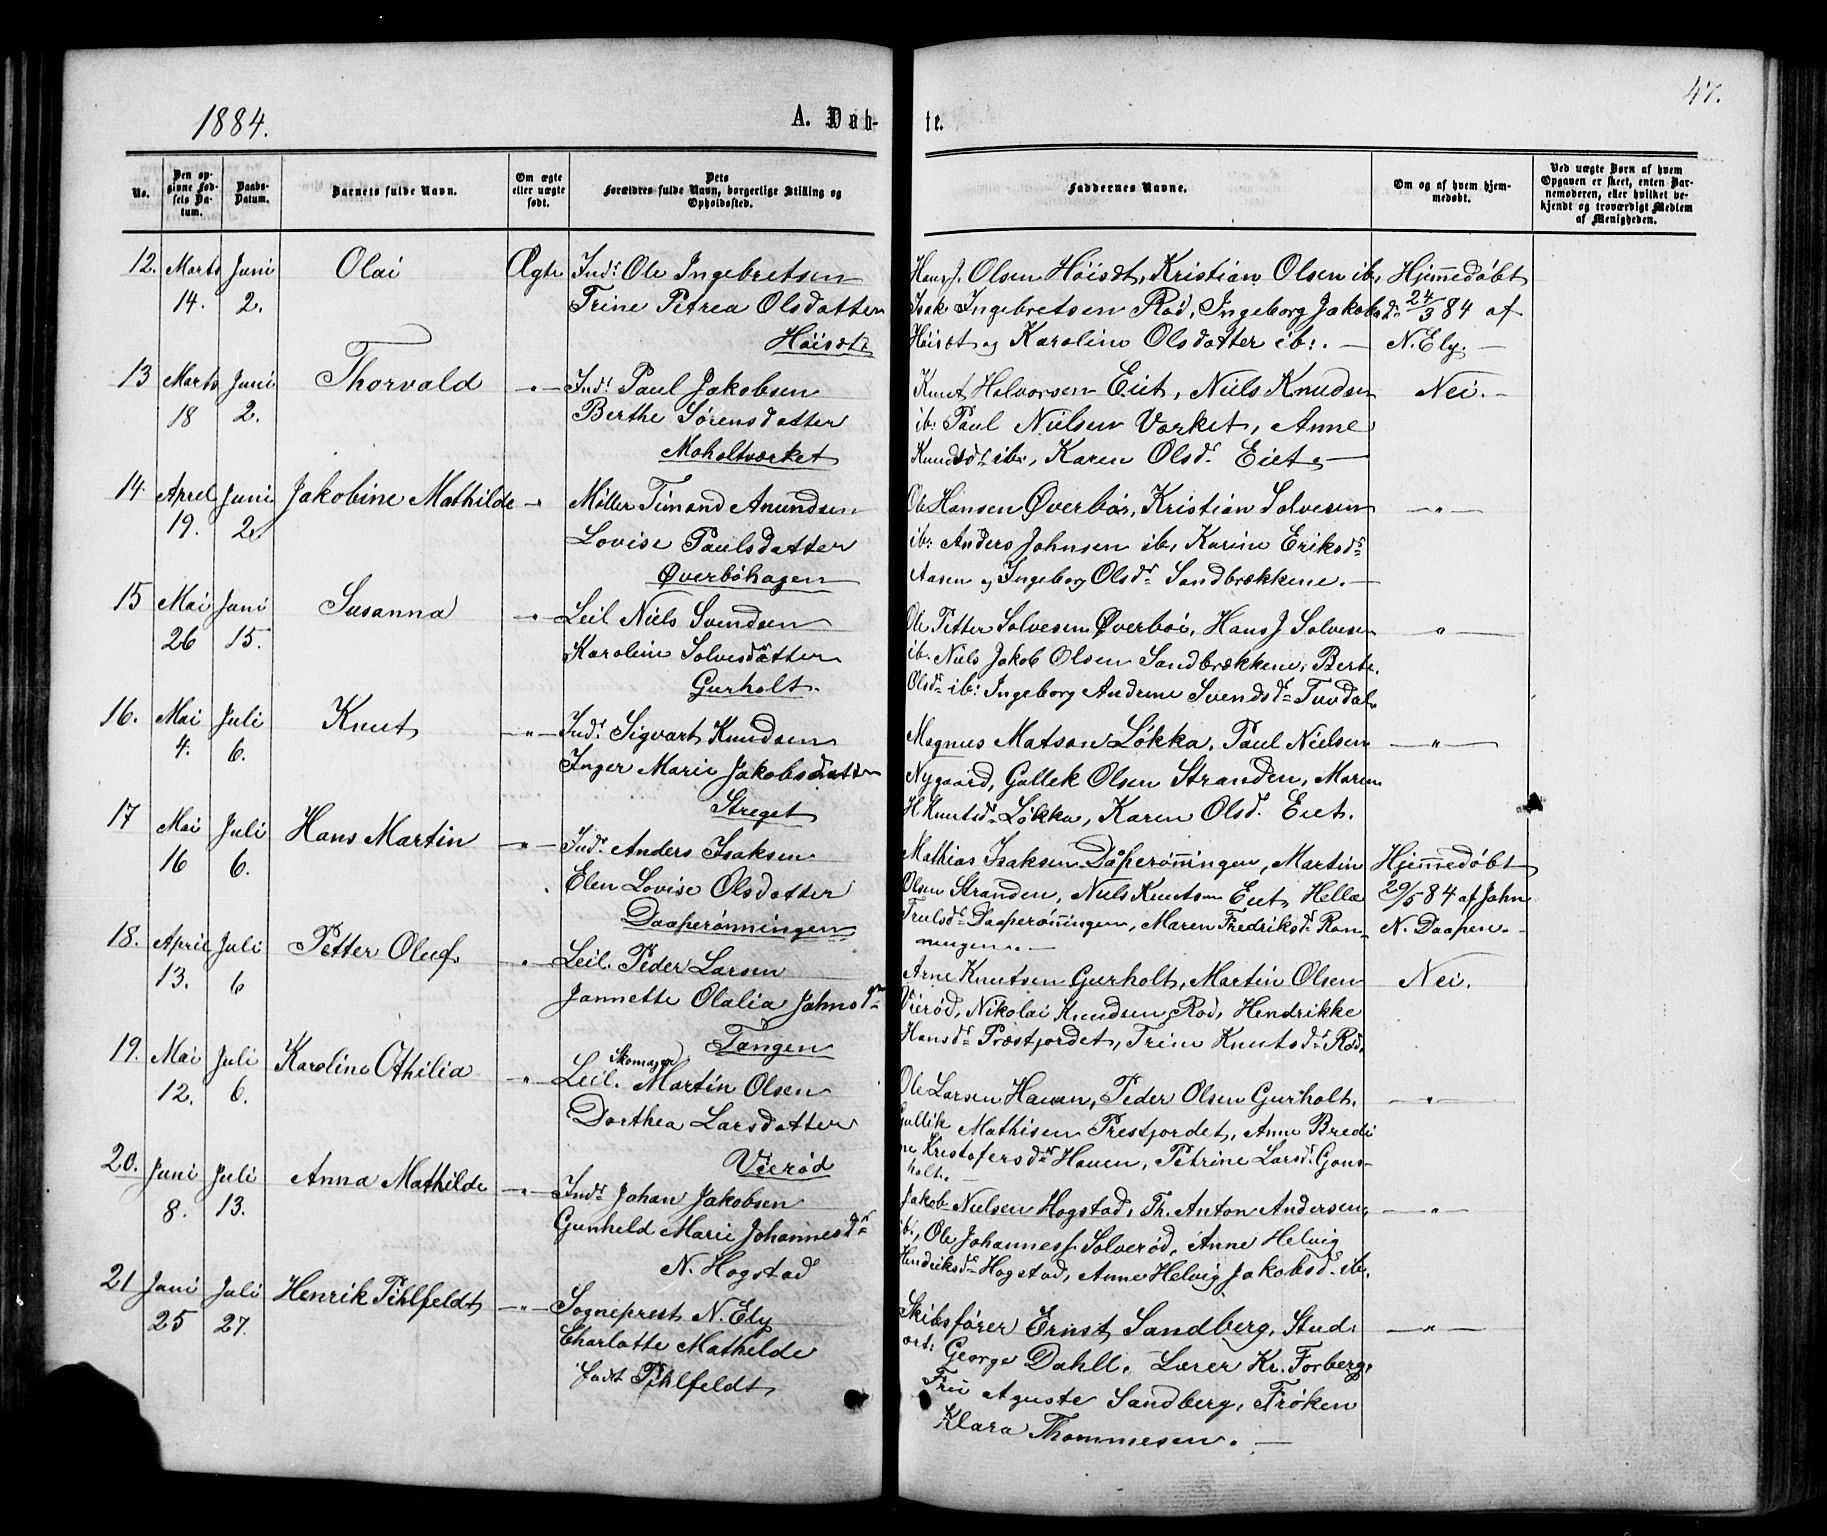 1884.
A. Døb-
te.
47.
No.
Den op-
givne Fød-
sels Da-
tum.
Daabs-
Datum.
Barnets fulde Navn.
Om ægte
eller uægte
født.
Dets
Forældres fulde Navn, borgerlige Stilling og
Opholdssted.
Faddernes Navne.
Om og af hvem hjem-
medøbt.
Ved uægte Børn af hvem
Opgaven er skeet, enten Bar-
nemoderen, eller hvilket be-
kjendt og troværdigt Medlem
af Menigheden.
12. Marts Juni Olai Ægte Inds Ole Ingebretsen
14. 2. Trine Petrea Olsdatter
Høisæt
Hans J. Olsen Höisæt, Kristian Olsen ib,
Isak Ingebretsen Rød, Ingeborg Jakobsd
Höisæt og Karoline Olsdatter ib:. —
Hjemmedöbt
24/3 84 af
N. Ely. —
13 Marts Juni Thorvald —"— Inds Paul Jakobsen
18 2. Berthe Sørensdatter
Moholtværket
Knut Halvorsen Eiet, Niels Knudsen
ib: Paul Nielsen Værket, Anne
Knudsdr ib:, Karen Olsdr Eiet. —
Nei. —
14. April Juni Jakobine Mathilde —"— Møller Timand Amundsen
19. 2. Lovise Paulsdatter
Øverböhagen
Ole Hansen Øverbøi, Kristian Solvesen
ib: Anders Johnsen ib, Karine Eriksdr
Aasen og Ingeborg Olsdr Sandbrækkene. —
—"—
15 Mai Juni Susanna —"— Leil Niels Svendsen
26 15. Karoline Solvesdatter
Gurholt.
Ole Petter Solvesen Øverbøi, Hans J. Solvesen
ib. Niels Jakob Olsen Sandbrækkene, Berte
Olsdr ib: Ingeborg Andrine Svendsdr Tuvdal.
—"—
16. Mai Juli Knut —"— Inds Sigvart Knudsen
4. 6. Inger Marie Jakobsdatter
Streget
Magnus Matson Løkka, Paul Nielsen
Nygaard, Gullek Olsen Stranden, Maren
H. Knutsdr Løkka, Karen Olsd. Eiet.
—"—
17 Mai Juli Hans Martin —"— Inds. Anders Isaksen
16 6. Elen Lovise Olsdatter
Daaperønningen
Mathias Isaksen Dåperønningen, Martin
Olsen Stranden, Niels Knutsen Eiet, Hellæ
Trulsdr Daaperønningen, Maren Fredriksdr Røn-
ningen. —
Hjemmedöbt
29/5 84 af John
N. Daapen. —
18. April Juli Petter Oluf. —"— Leil. Peder Larsen
13. 6 Jannette Olalia Johnsdr
Tangen
Arne Knutsen Gurholt, Martin Olsen
Vierød, Nikolai Knudsen Rød, Hendrikke
Hansdr Præstjordet, Trine Knutsdr Rød.
Nei.
19. Mai Juli Karoline Othilia —"— Leil. Skomager Martin Olsen
12. 6. Dorthea Larsdatter
Vierød
Ole Larsen Hauen, Peder Olsen Gurholt.
Gullik Mathisen Prestjordet, Anne Bredi
ne Kristofersdr Hauen, Petrine Larsd. Gons-
holt. —
—"—
20. Juni Juli Anna Mathilde —"— Inds Johan Jakobsen
8. 13. Gunheld Marie Johannesdr
N. Hogstad
Jakob Nielsen Hogstad, Th. Anton Andersen,
ib, Ole Johannesf. Solverød, Anne Helvig
Hendriksdr Hogstad, Anne Helvig Jakobsd. ib.
—"—
21 Juni Juli Henrik Pihlfeldt —"— Sogneprest N. Ely
25 27. Charlotte Mathilde
født Pihlfeldt
Skibsfører Ernst Sandberg, Stud:
art: George Dahll, Lærer Kr. Forberg,
Fru Aguste Sandberg, Frøken
Klara Thommesen. —
—"—